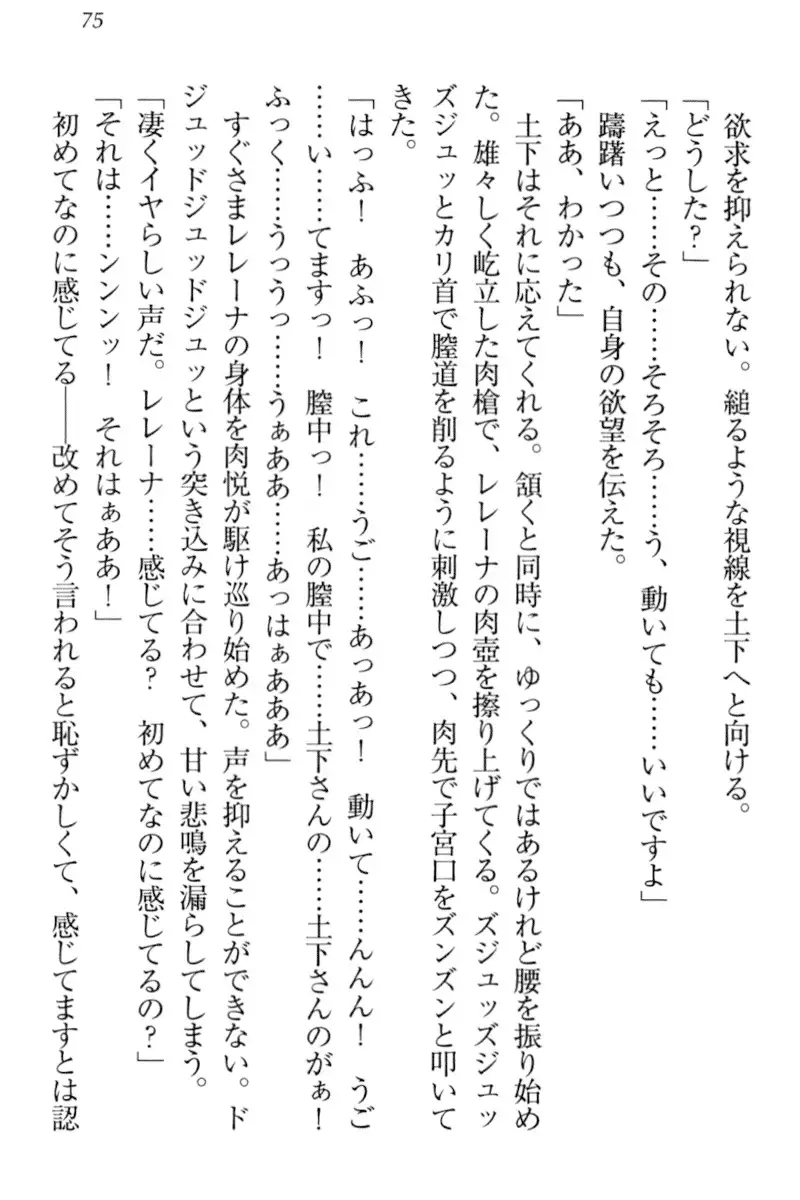 75
欲求を抑えられない。縋るような視線を土下へと向ける。
「どうした？」
「えっと……その……そろそろ……う、動いても……いいですよ」
躊躇いつつも、自身の欲望を伝えた。
「ああ、わかった」
土下はそれに応えてくれる。頷くと同時に、ゆっくりではあるけれど腰を振り始め
た。雄々しく屹立した肉槍で、レレーナの肉壺を擦り上げてくる。ズジュッズジュッ
ズジュッとカリ首で膣道を削るように刺激しつつ、肉先で子宮口をズンズンと叩いて
きた。
「はっふ！　あふっ！　これ……うご……あっあっ！　動いて……んんん！　うご
……い……てますっ！　膣中っ！　私の膣中で……土下さんの……土下さんのがぁ！
ふっく……うっうっ……うぁああ……あっはぁあああ」
すぐさまレレーナの身体を肉悦が駆け巡り始めた。声を抑えることができない。ド
ジュッドジュッドジュッという突き込みに合わせて、甘い悲鳴を漏らしてしまう。
「凄くイヤらしい声だ。レレーナ……感じてる？　初めてなのに感じてるの？」
「それは……ンンンッ！　それはぁああ！」
初めてなのに感じてる――改めてそう言われると恥ずかしくて、感じてますとは認